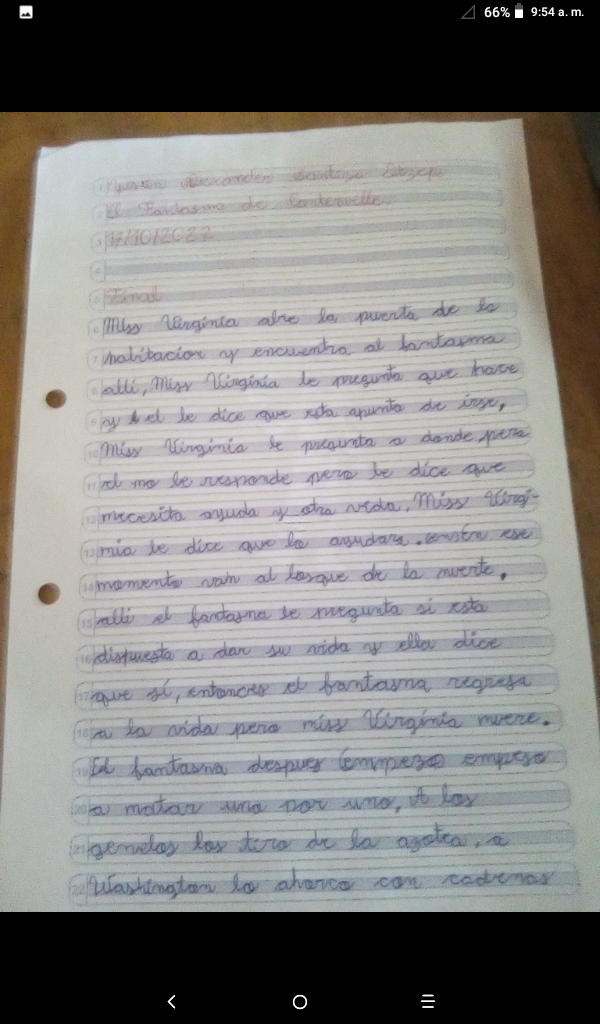 66% 9:54 a. m.
El Fantasma de Canterville.
17/10/2022
Final
Miss Virginia abre la puerta de la
habitacion y encuentra al fantasma
allí, Miss Virginia le pregunta que hace
y el le dice que esta apunta de irse,
Miss Virginia le pregunta a donde pero
el no le responde pero le dice que
necesita ayuda y otra vida, Miss Virgi-
nia le dice que lo ayudara. en ese
momento van al bosque de la muerte,
allí el fantasma le pregunta si esta
dispuesta a dar su vida y ella dice
que sí, entonces el fantasma regresa
a la vida pero miss Virginia muere.
El fantasma despues (empezo) empeso
a matar uno por uno, A los
gemelos los tiro de la azotea, a
Washington lo ahorco con cadenas